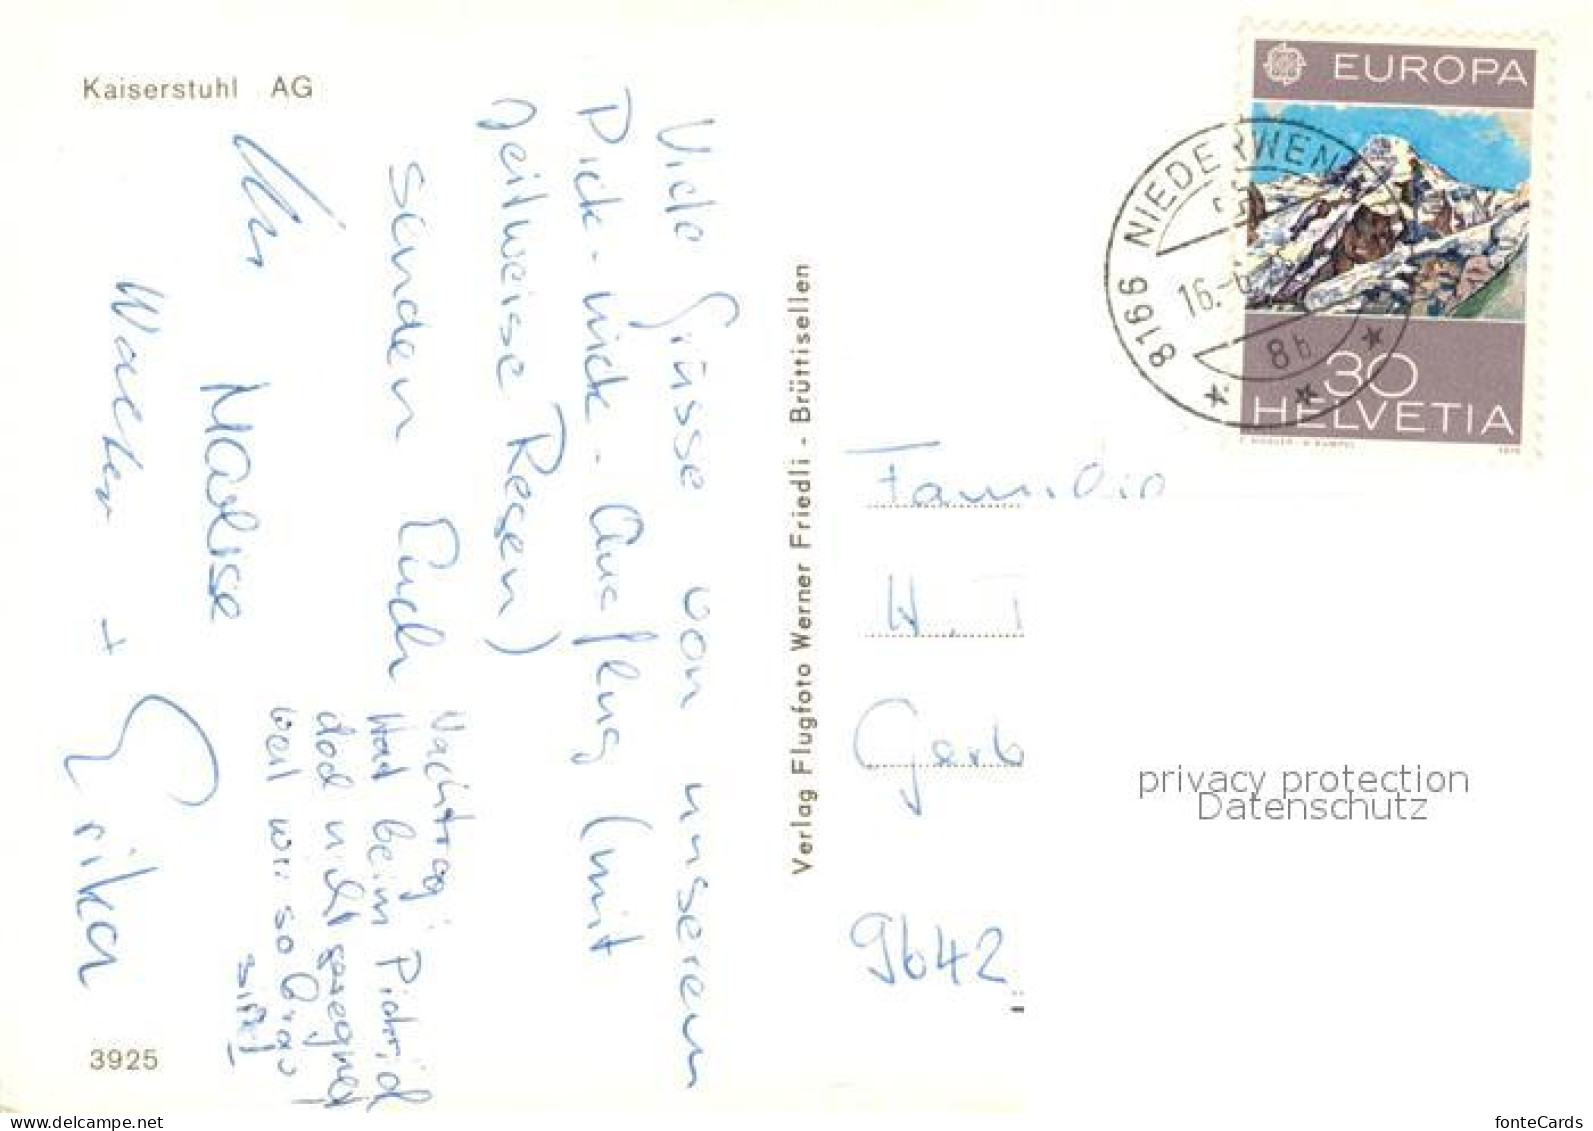 Kaiserstuhl AG
Viele Grüsse von unserem
Pick-nick-Ausflug (mit
zeitweise Regen)
senden Euch
Marlise
Walter +
Erika
Nachtrag:
Hat beim Picknick
doch nicht geregnet
weil wir so brav
sind!
3925
Verlag Flugfoto Werner Friedli - Brüttisellen
EUROPA
30
HELVETIA
8166 NIEDERWEN
16.-6
8 h
Familie
H. T
Garb
9642
privacy protection
Datenschutz
fonteCards